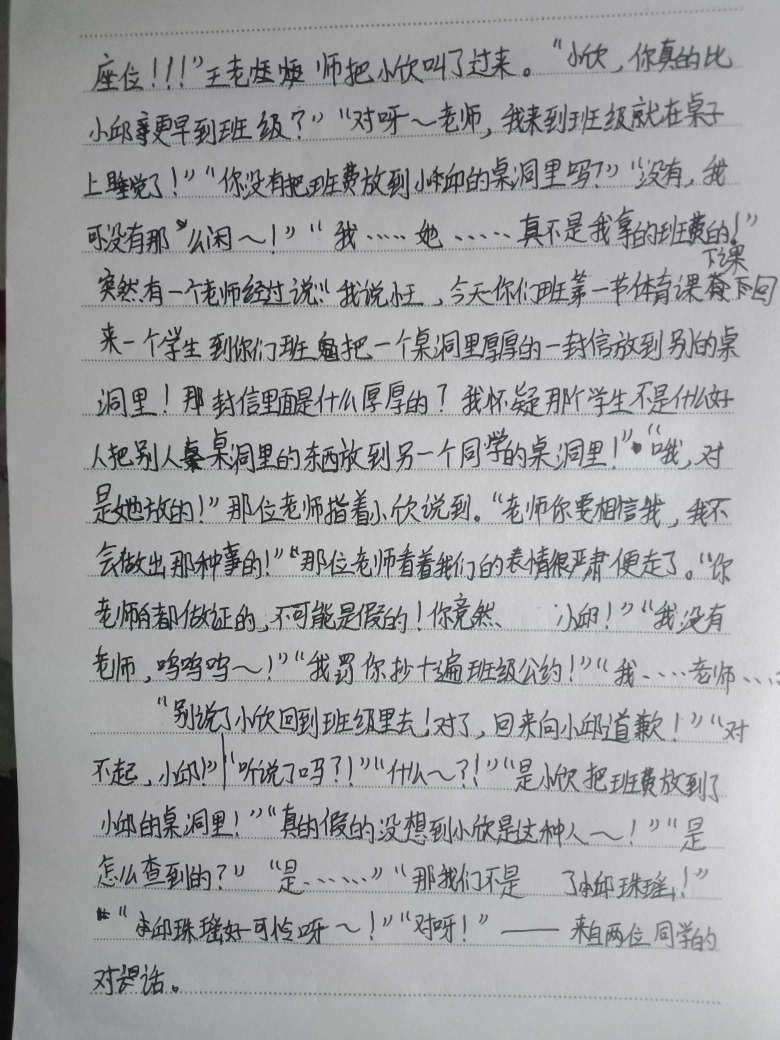 座位！！！”王老师把小欣叫了过来。“小欣，你真的比
小邱更早到班级？”“对呀～老师，我来到班级就在桌子
上睡觉了！”“你没有把班费放到小邱的桌洞里吗？”“没有，我
可没有那么闲～！”“我……她……真不是我拿的班费的！”
突然有一个老师经过说：“我说小王，今天你们班第一节体育课下课下回
来一个学生到你们班把一个桌洞里厚厚的一封信放到别的桌
洞里！那封信里面是什么厚厚的？我怀疑那个学生不是什么好
人把别人桌洞里的东西放到另一个同学的桌洞里！”“哦，对
是她放的！”那位老师指着小欣说到。“老师你要相信我，我不
会做出那种事的！”“那位老师看着我们的表情很严肃便走了。“你
老师都做证的，不可能是假的！你竟然、 小邱！”“我没有
老师，呜呜呜～！”“我罚你抄十遍班级公约！”“我……老师……
“别说了小欣回到班级里去！对了，回来向小邱道歉！”“对
不起，小邱！”“听说了吗？！”“什么～？！”“是小欣把班费放到了
小邱的桌洞里！”“真的假的没想到小欣是这种人～！”“是
怎么查到的？” “是……”“那我们不是 了邱珠瑶！”
“邱珠瑶好可怜呀～！”“对呀！”——来自两位同学的
对话。